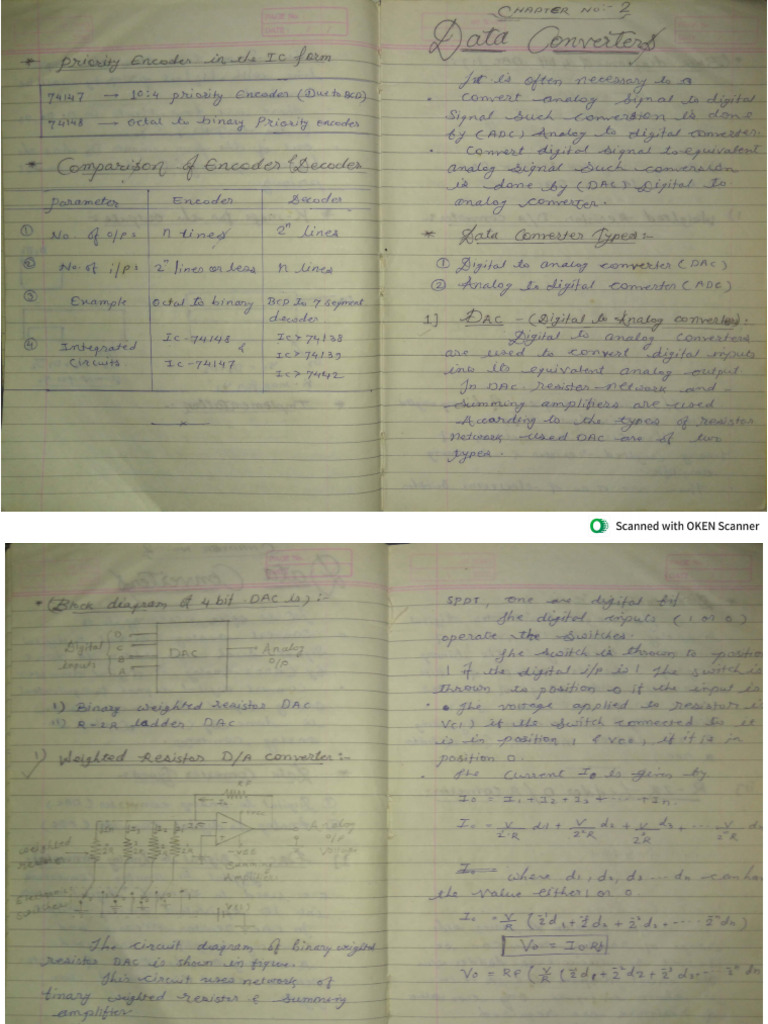 * Priority Encoder in the IC form
74147 → 10:4 priority Encoder (Due to BCD)
74148 → octal to binary Priority encoder
* Comparison of Encoder & Decoder
Parameter Encoder Decoder
① No. of O/P: n lines 2ⁿ lines
② No. of i/P: 2ⁿ lines or less n lines
③ Example Octal to binary BCD to 7 segment
decoder
④ Integrated Circuits IC-74148 & IC-74147 IC > 74138
IC > 74139
IC > 7442
CHAPTER NO:- 2
Data Converters
It is often necessary to a
convert analog signal to digital
Signal such conversion is done
by (ADC) Analog to digital converter.
• Convert digital signal to equivalent
analog signal such conversion
is done by (DAC) Digital to
analog converter.
* Data Converter Types:-
① Digital to analog converter (DAC)
② Analog to digital converter (ADC)
1] DAC - (Digital to Analog converter):
Digital to analog converters
are used to convert digital inputs
into its equivalent analog output
In DAC resistor network and
summing amplifiers are used
According to the types of resistor
network used DAC are of two
types.
Scanned with OKEN Scanner
* (Block diagram of 4 bit DAC is) :-
Digital inputs
D
C
B
A
DAC
Analog
O/P
1) Binary weighted resistor DAC
R-2R ladder DAC
1) Weighted Resistor D/A converter:-
RF
Analog
O/P
Voltage
weighted
resistor
Summing
Amplifier
The circuit diagram of Binary weighted
resistor DAC is shown in figure.
This circuit uses network of
binary weighted resistor & summing
amplifier
SPDT, one are digital
The digital inputs (1 or 0)
operate the switches.
The switch is thrown to position
1 if the digital i/p is 1 The switch is
thrown to position 0 if the input is
• The voltage applied to resistor is
V(1) if the switch connected to it
is in position 1, & if it is in
position 0.
• The current I₀ is given by
I₀ = I₁ + I₂ + I₃ + ..... + In
where d₁, d₂, d₃ ... dn can have
the value either 1 or 0
I₀ = V/R (2⁻¹d₁ + 2⁻²d₂ + 2⁻³d₃ + ..... 2⁻ⁿdn)
V₀ = I₀RF